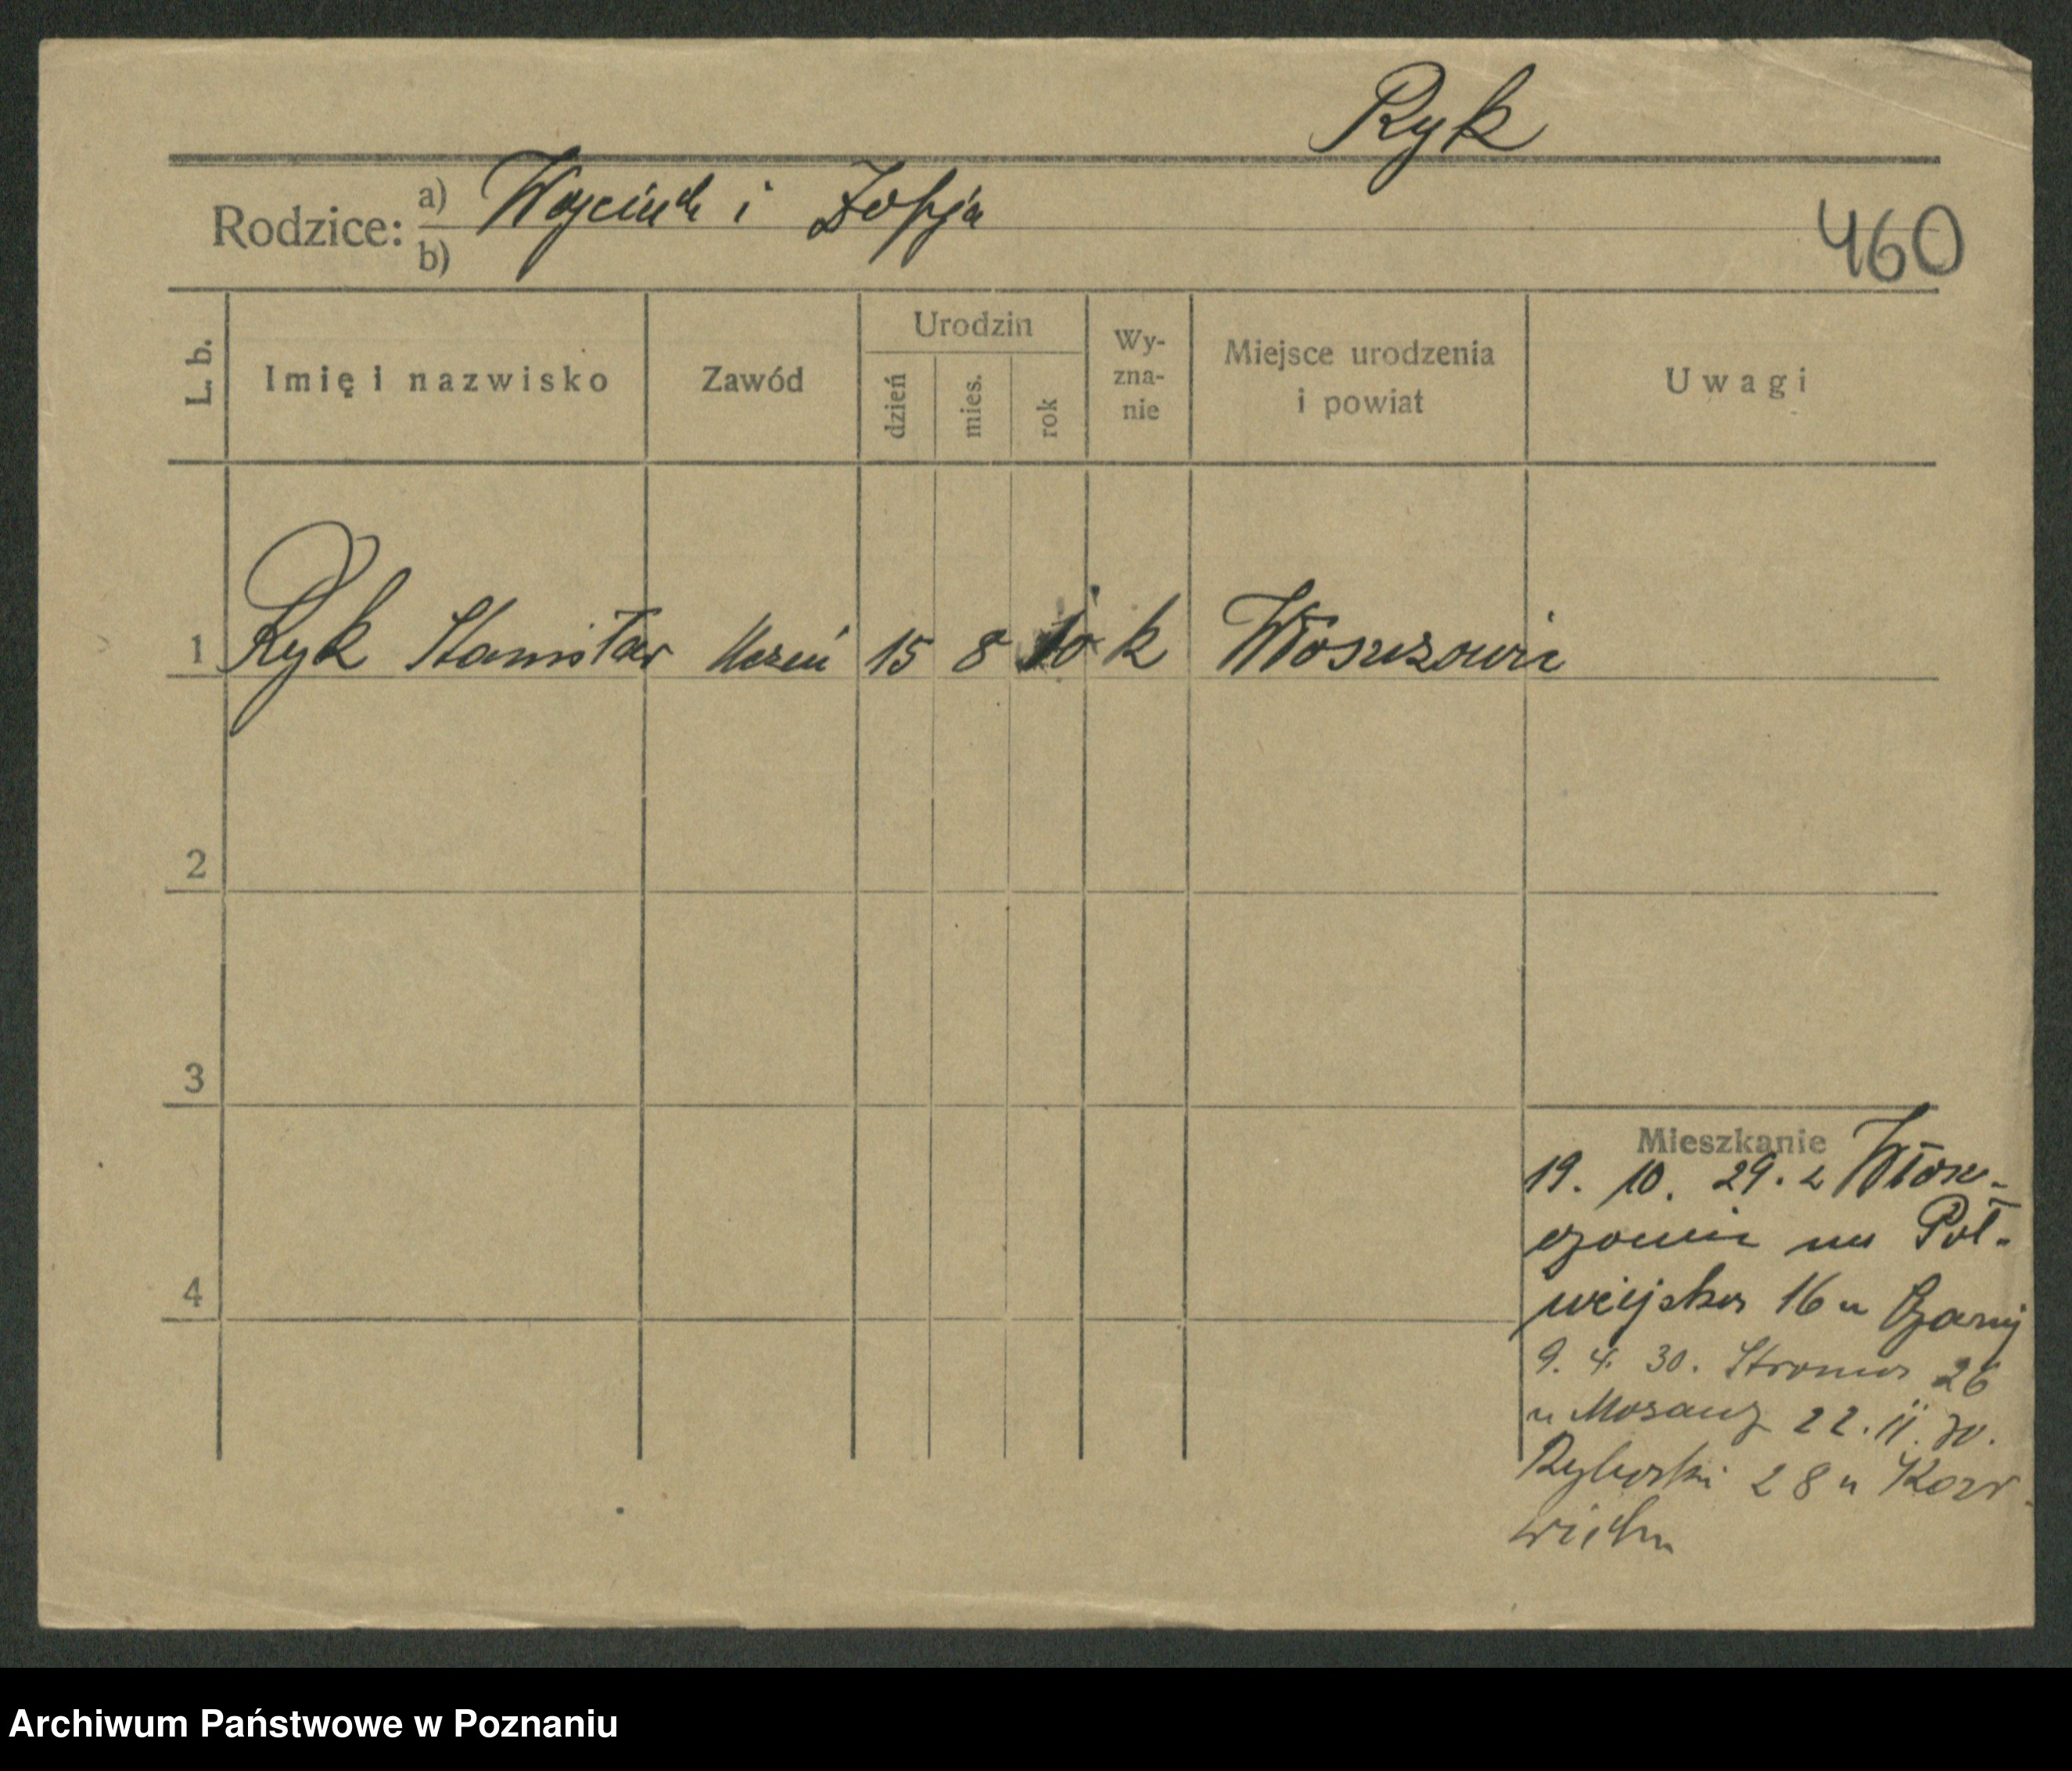 Ryk
Rodzice: a) Wojciech i Zofja
b)
460
L. b. Imię i nazwisko Zawód Urodzin dzień mies. rok Wy-zna-nie Miejsce urodzenia i powiat Uwagi
1 Ryk Stanisław Uczeń 15 8 10 k Włoszczowa
2
3
4
Mieszkanie
19. 10. 29. z Włosz-
czowa na Pół-
wiejska 16 u Czarnej
9. 4. 30. Stroma 26
u 22. 11. 30.
Rybaki 28 u

Archiwum Państwowe w Poznaniu